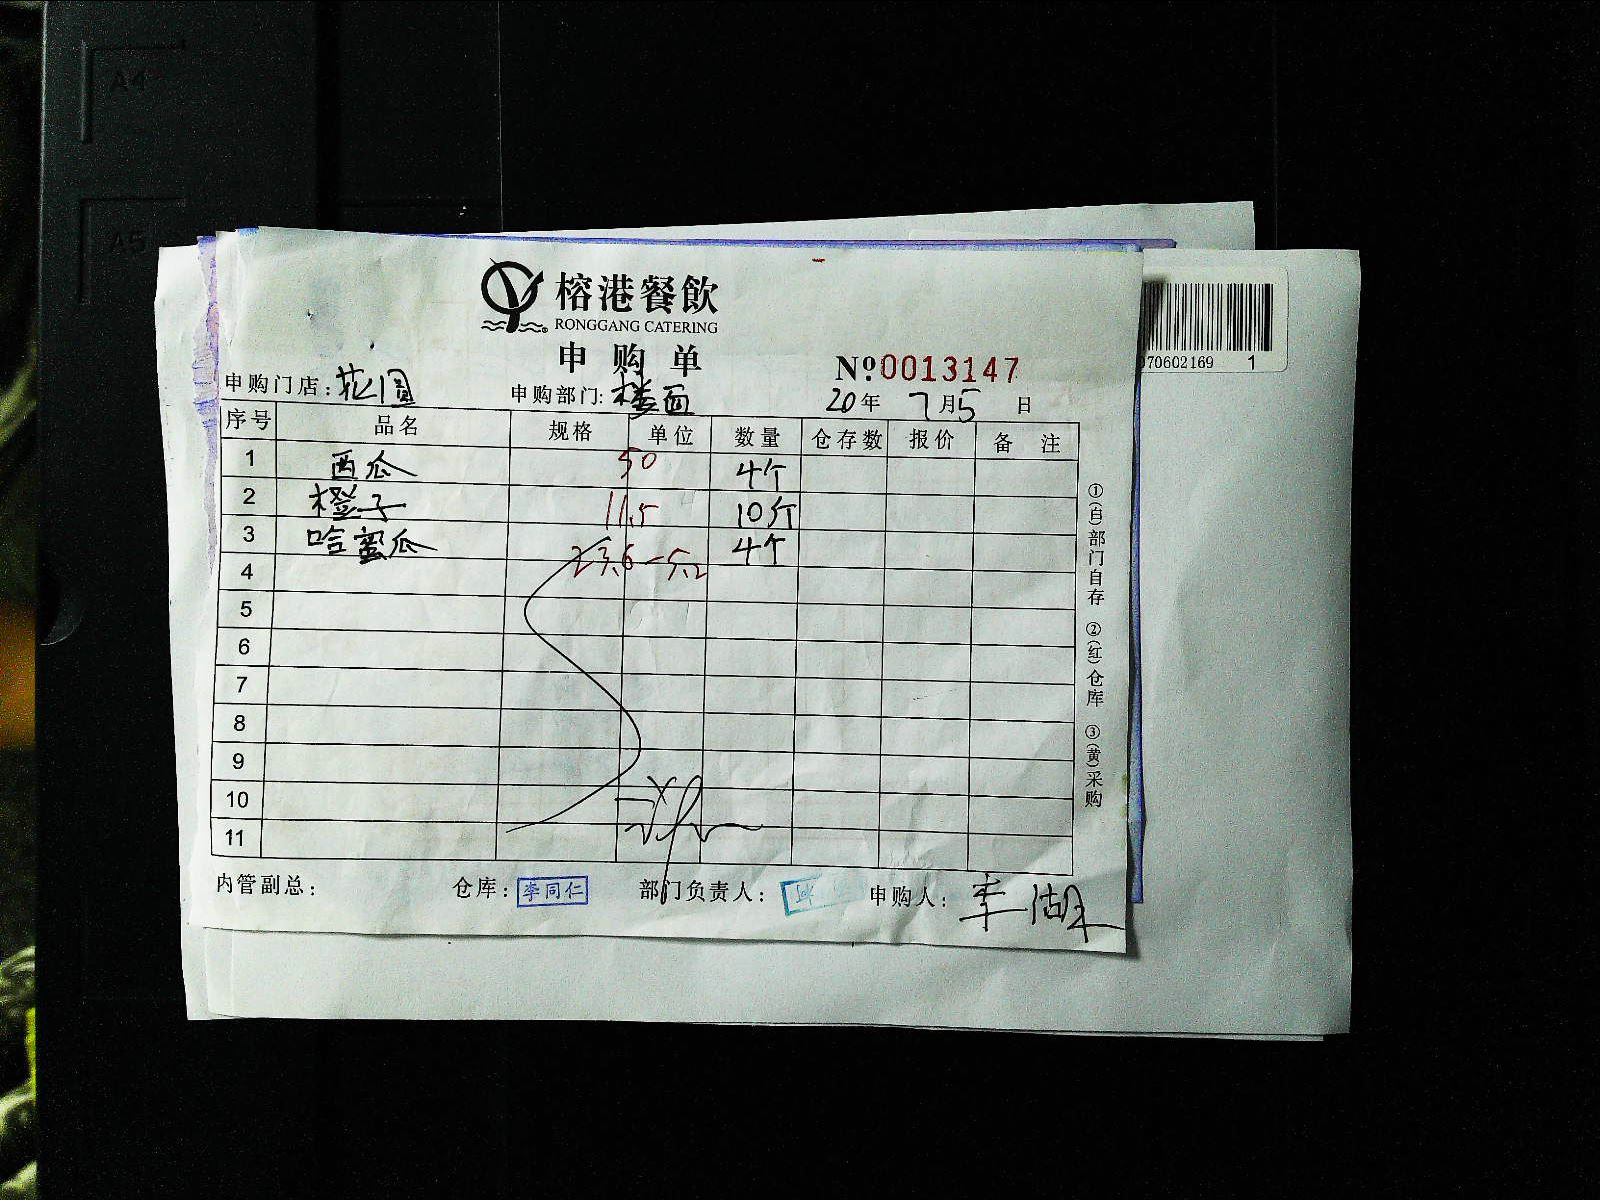 A4
A5
榕港餐飲
RONGGANG CATERING
申购单
№0013147
070602169 1
申购门店：花圆 申购部门：楼面 20年 7月5日
序号 品名 规格 单位 数量 仓存数 报价 备注
1 西瓜 50 4个
2 橙子 11.5 10斤
3 哈蜜瓜 23.6-5.2 4个
4
5
6
7
8
9
10
11
①(白)部门自存 ②(红)仓库 ③(黄)采购
内管副总： 仓库：李同仁 部门负责人： 申购人：李